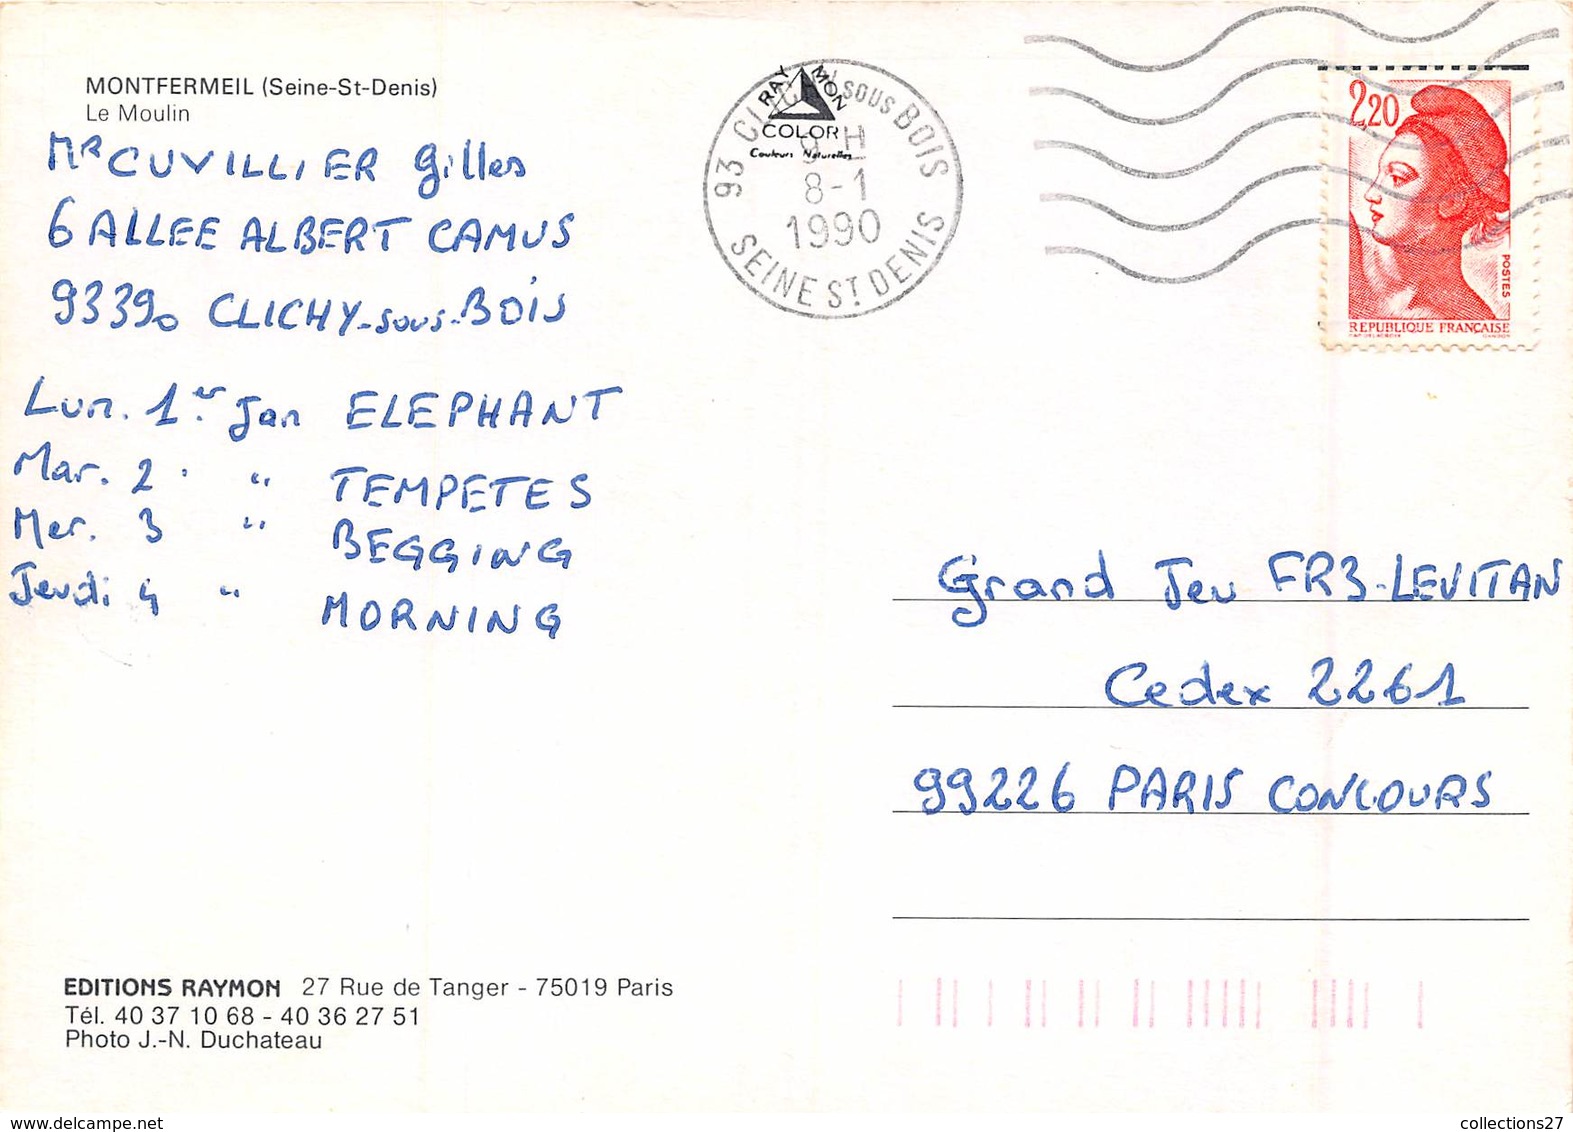 MONTFERMEIL (Seine-St-Denis)
Le Moulin
MR CUVILLIER Gilles
6 ALLEE ALBERT CAMUS
93390 CLICHY-sous-BOIS
Lun. 1er Jan ELEPHANT
Mar. 2 " TEMPETES
Mer. 3 " BEGGING
Jeudi 4 " MORNING
EDITIONS RAYMON 27 Rue de Tanger - 75019 Paris
Tél. 40 37 10 68 - 40 36 27 51
Photo J.-N. Duchateau
RAYMON
COLOR
Couleurs Naturelles
93 CLICHY SOUS BOIS
9 H
8-1
1990
SEINE ST DENIS
2,20
POSTES
REPUBLIQUE FRANÇAISE
Grand Jeu FR3-LEVITAN
Cedex 2261
99226 PARIS CONCOURS
collections27